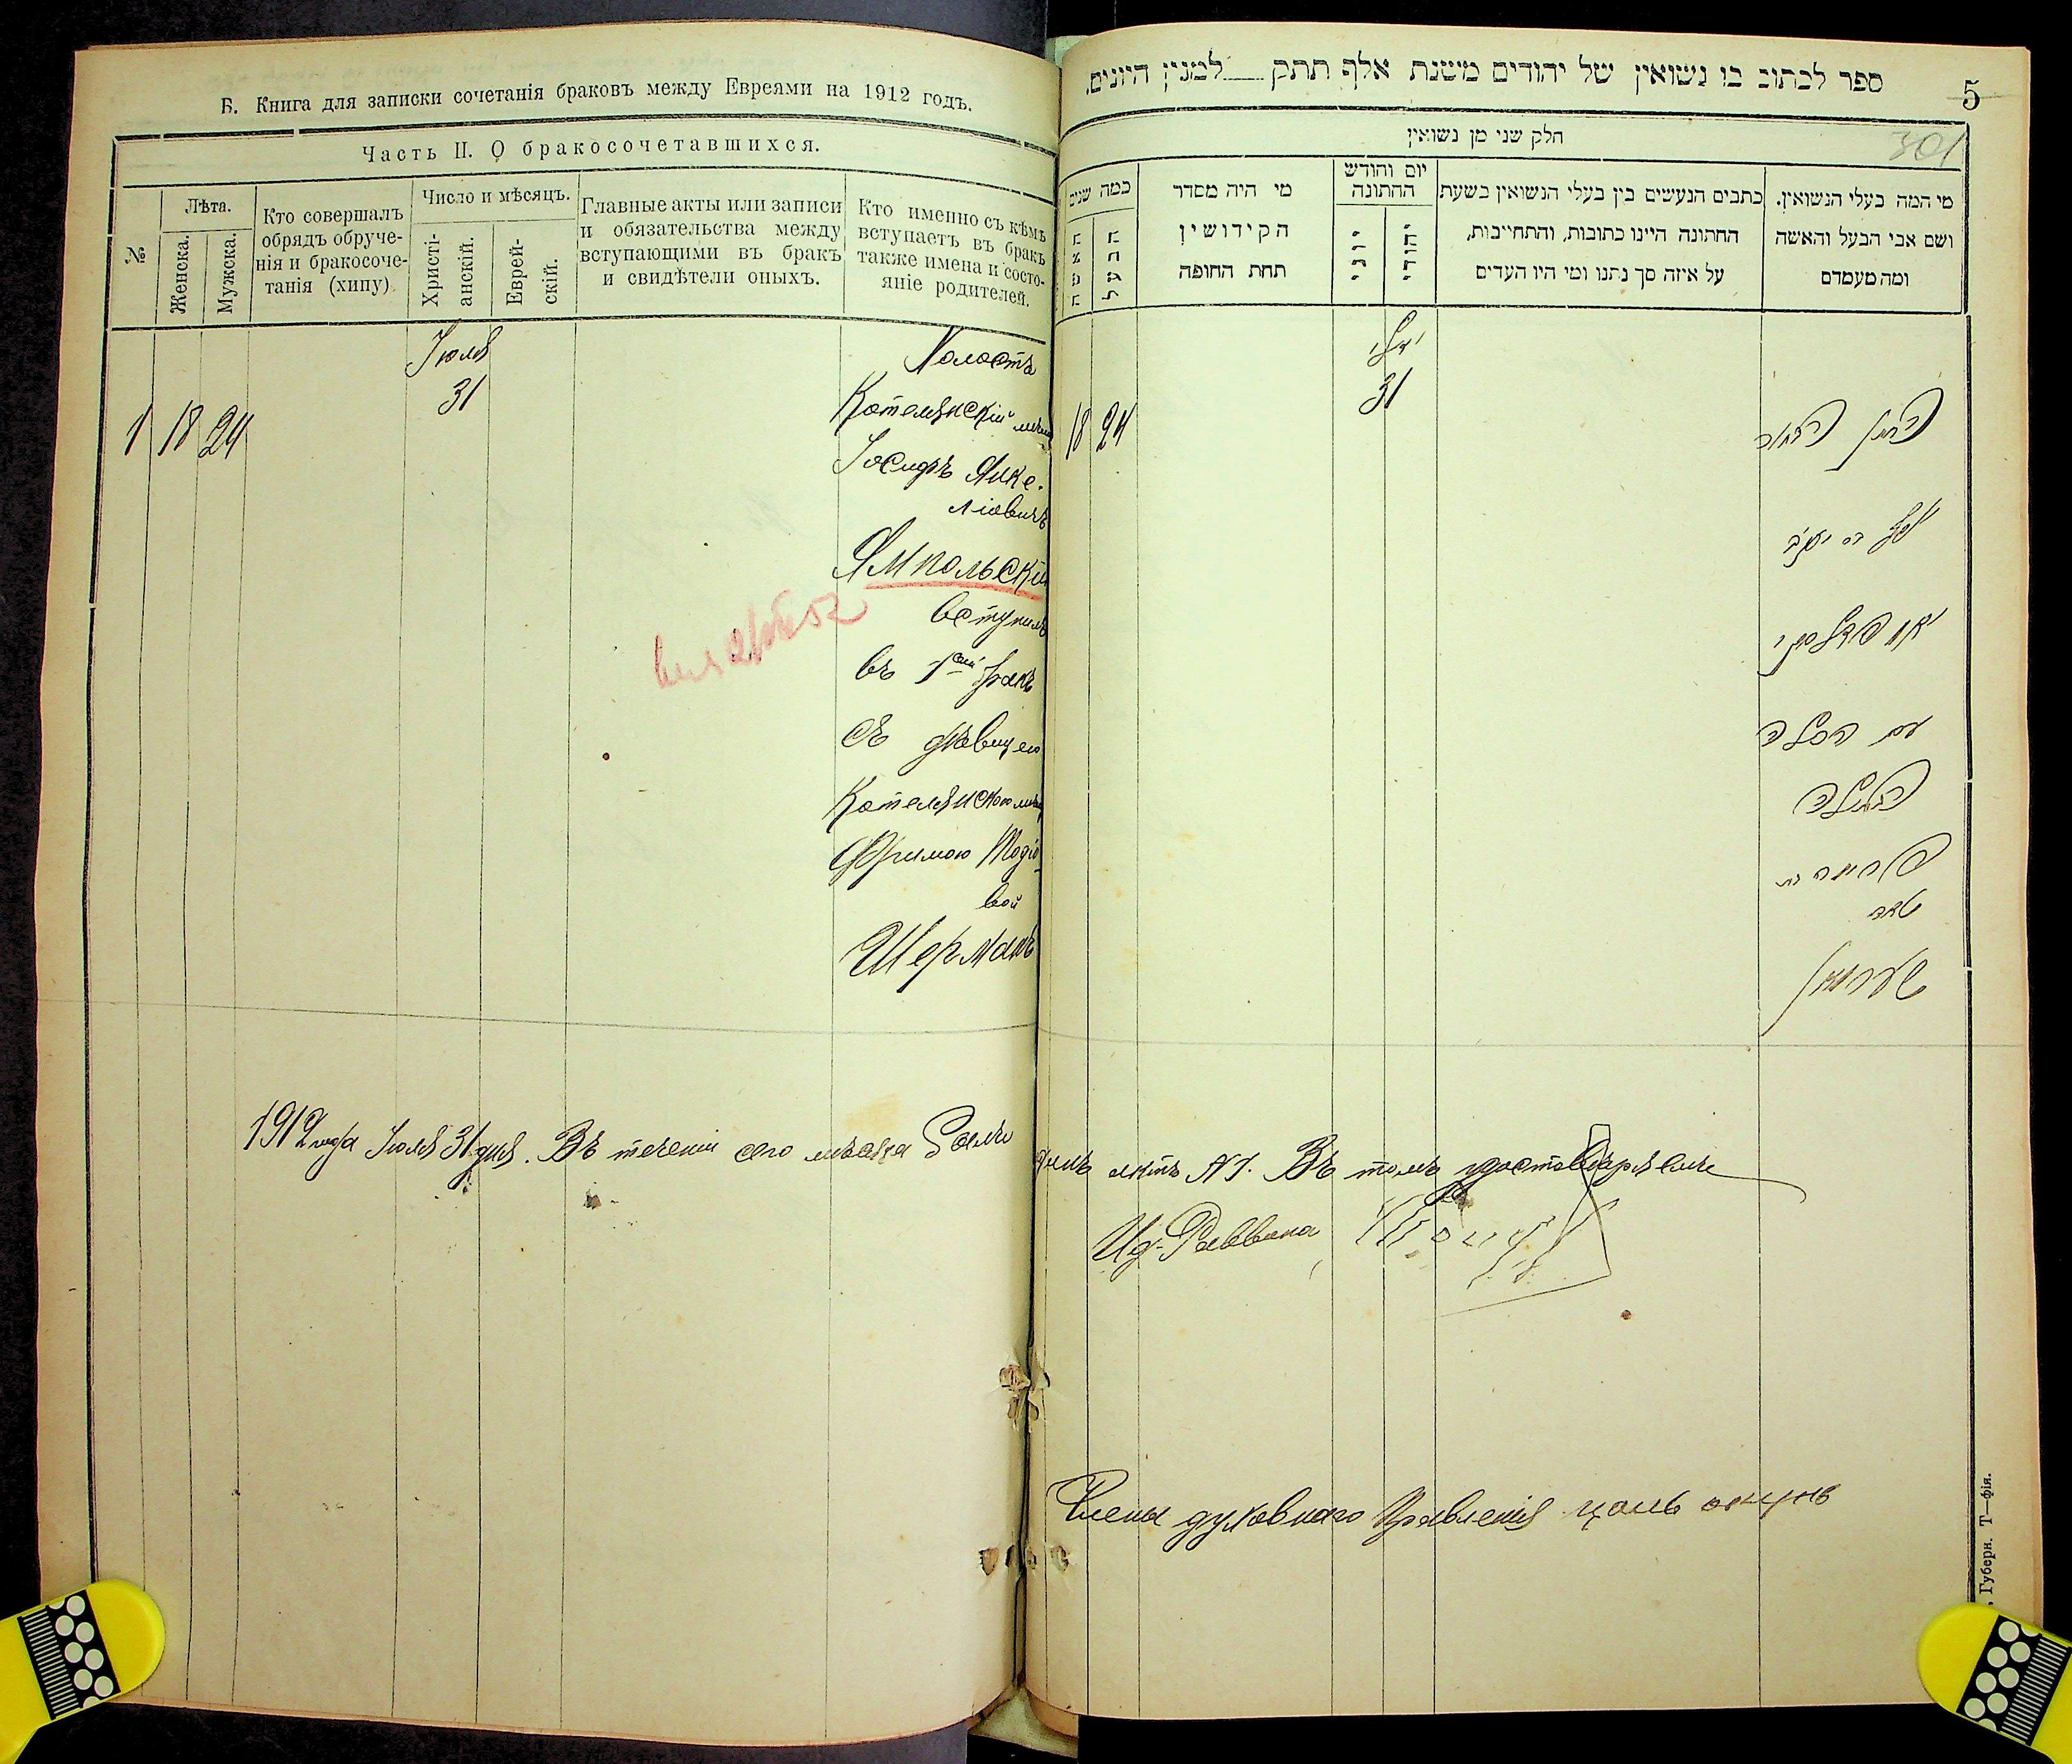 Б. Книга для записки сочетанія браковъ между Евреями на 1912 годъ.
Часть II. О бракосочетавшихся.
№
Лѣта.
Женска.
Мужска.
Кто совершалъ
обрядъ обруче-
нія и бракосоче-
танія (хипу)
Число и мѣсяцъ.
Христі-
анскій.
Еврей-
скій.
Главные акты или записи
и обязательства между
вступающими въ бракъ
и свидѣтели оныхъ.
Кто именно съ кѣмъ
вступаетъ въ бракъ
также имена и состо-
яніе родителей.
Іюля
31
1 18 24
Холостъ
Котелянскій мѣщ
Іосифъ Янке-
ліовичъ
Ямпольскій
вступилъ
въ 1ый бракъ
съ дѣвицею
Котелянскою мѣщ
Фримою
вой
Шерманъ
1912 года Іюля 31 дня. Въ теченіи сего мѣсяца
ספר לכתוב בו נשואין של יהודים משנת אלף תתק למנין היונים.
5
301
חלק שני מן נשואין
כמה שנים
האשה
הבעל
מי היה מסדר
הקידושין
תחת החופה
יום וחודש
החתונה
יוני
יהודי
כתבים הנעשים בין בעלי הנשואין בשעת
החתונה היינו כתובות, והתחייבות,
על איזה סך נתנו ומי היו העדים
מי המה בעלי הנשואין.
ושם אבי הבעל והאשה
ומה מעמדם
יולי
31
18 24
יאמפאלסקי
עם הכלה
הבתולה
שערמאן
актъ №1. Въ томъ удостовѣряемъ
И.д. Раввина
Члены духовнаго Правленія
Губерн. Т—фія.